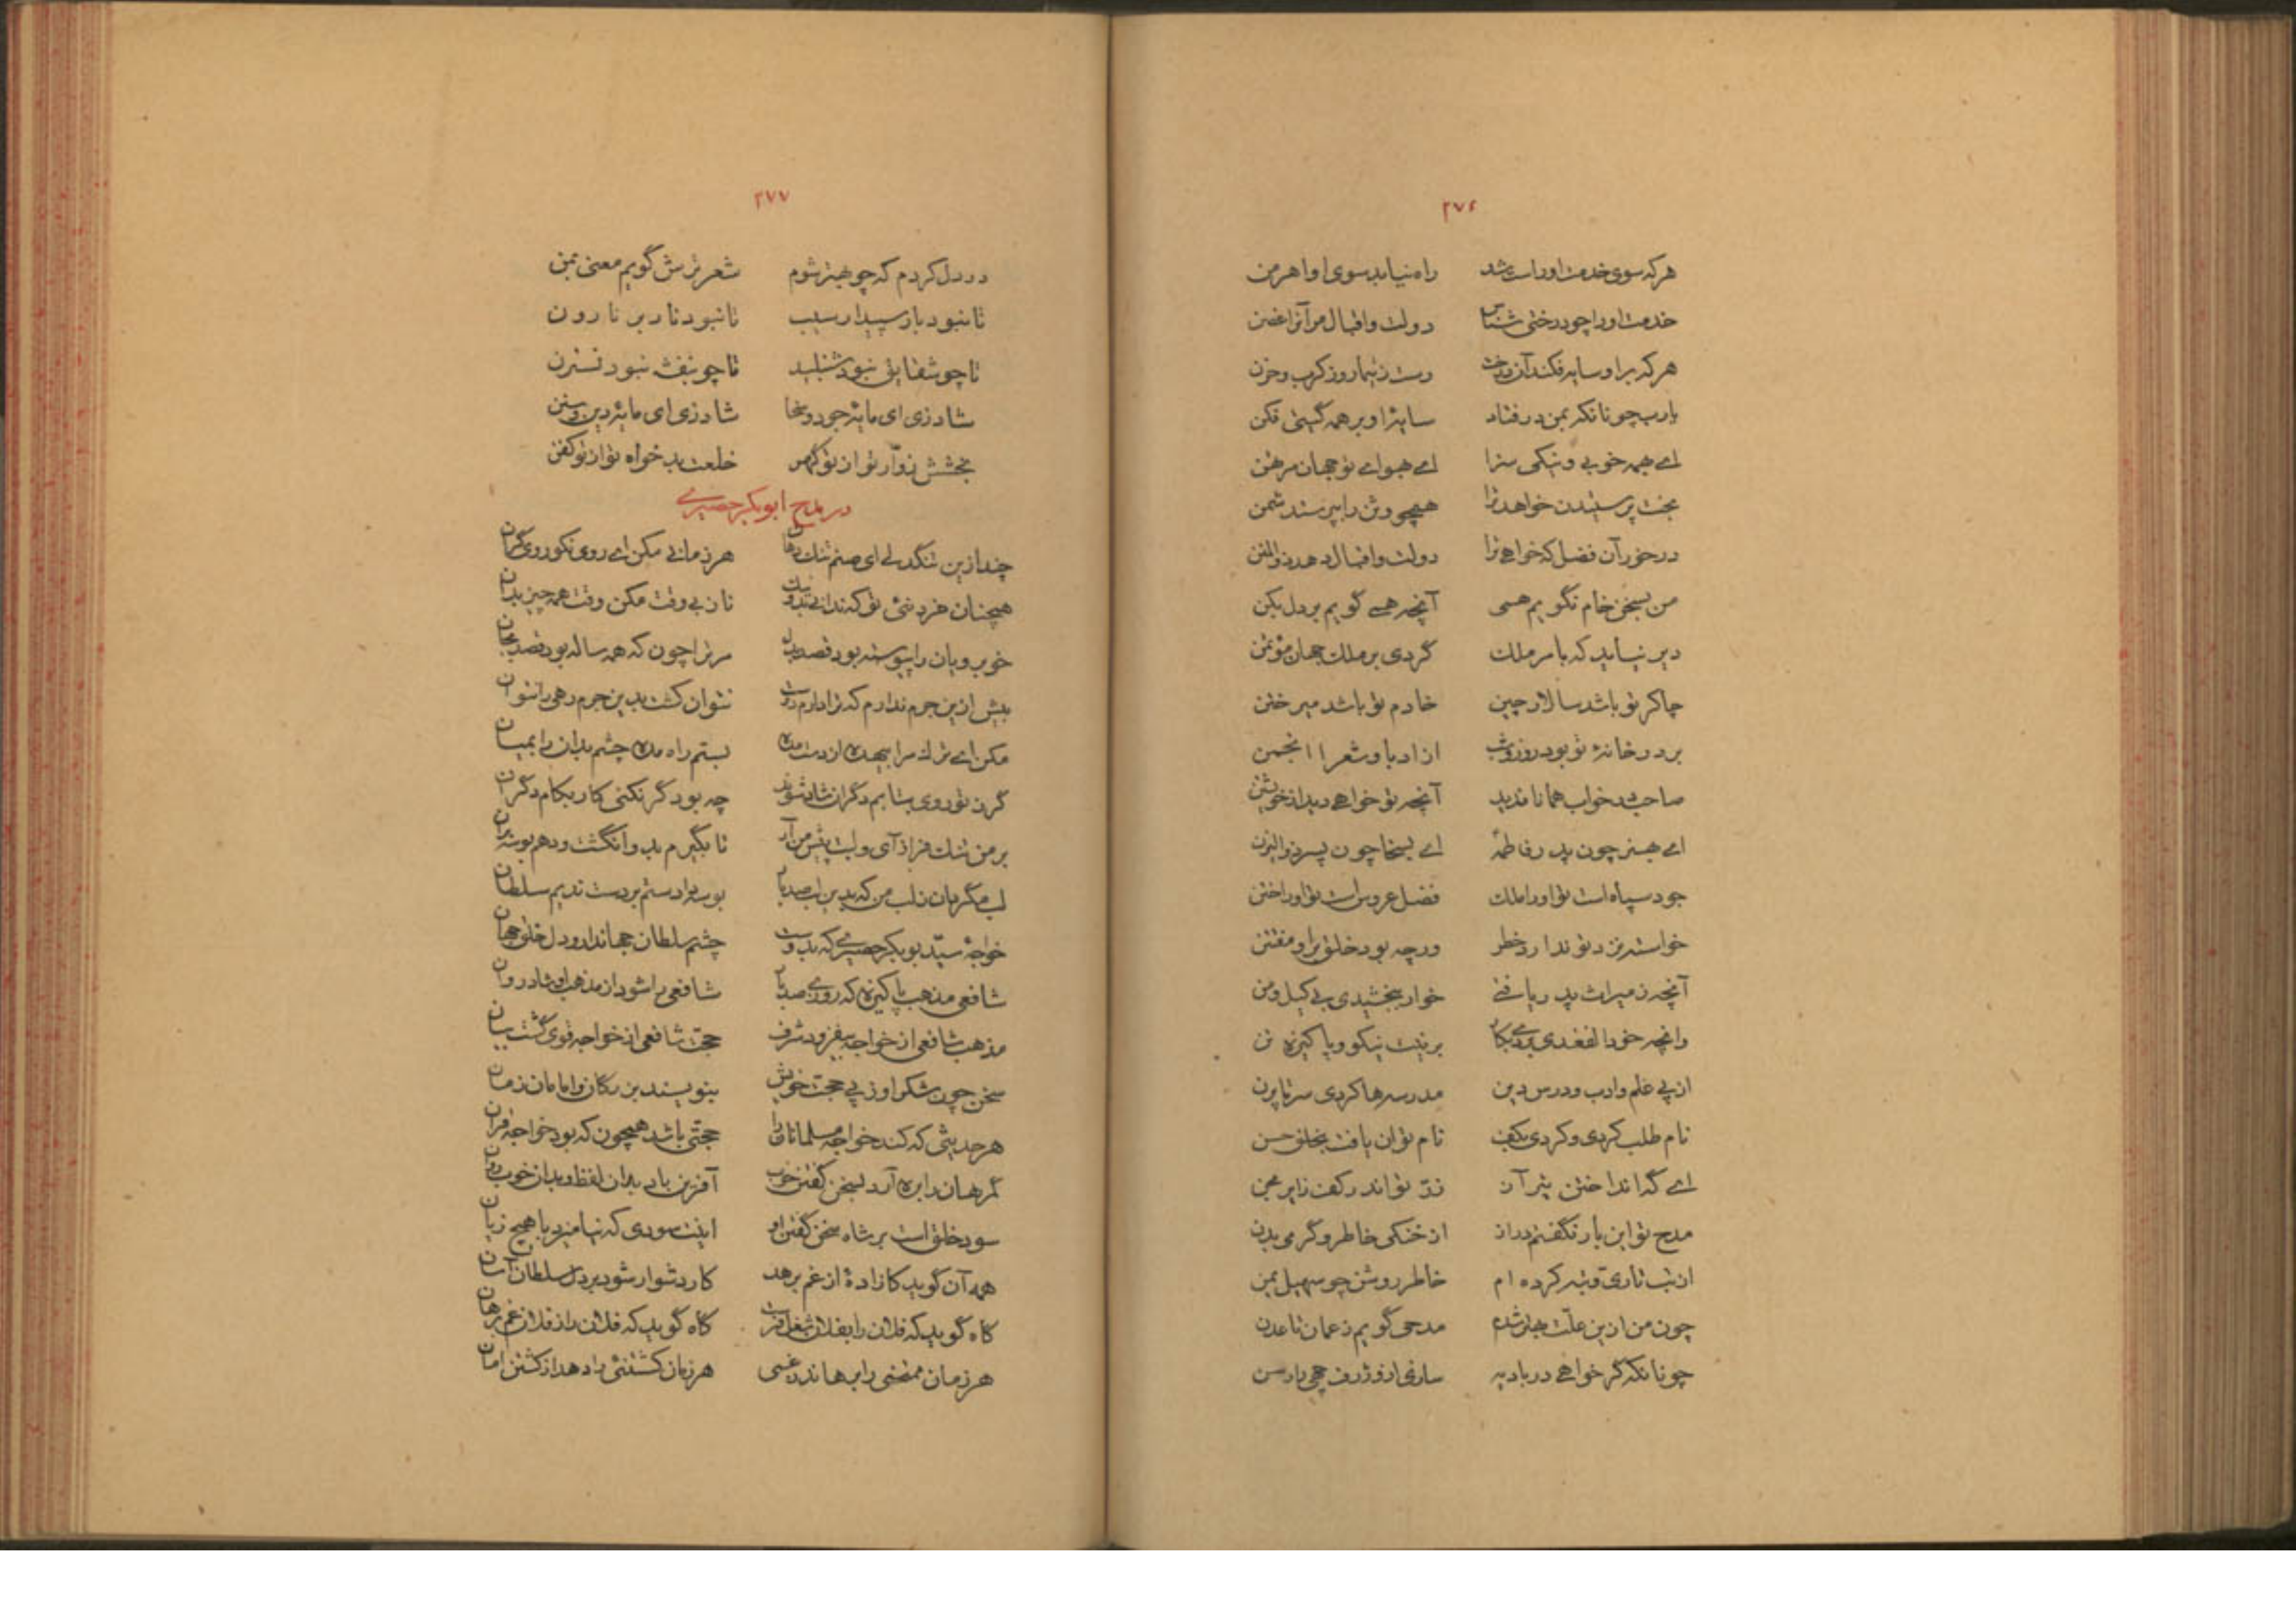 ۲۷۶
هرکه سوی خدمت او راست شد راه نیابد سوی او اهرمن
خدمت او را چو درختی شناس دولت و اقبال مر آنرا غصن
هرکه بر او سایه فکند آن درخت رست ز تیمار و ز کرب و حزن
یارب چونانکه بمن درفتاد سایهٔ او بر همه گیتی فکن
ای همه خوبی و نیکی سزا ای هوای تو جهان مرتهن
بخت پرستیدن خواهد ترا همچو وثن را بپرستد شمن
درخور آن فضل که خواهی ترا دولت و اقبال دهد ذوالمنن
من بسخن خام نگویم همی آنچه همی گویم بر دل بکن
دیر نیاید که بامر ملک گردی بر ملک جهان مؤتمن
چاکر تو باشد سالار چین خادم تو باشد میر ختن
بر در خانهٔ تو بود روز و شب از ادبا و شعرا انجمن
صاحب در خواب همانا ندید آنچه تو خواهی دید از خویشتن
ای بهنر چون پدر فاطمه ای بسخا چون پسر ذوالیزن
جود سپاه است تو او را ملک فضل عروس است تو او را ختن
خواسته نزد تو ندارد خطر ورچه بود خلق بر او مفتتن
آنچه ز میراث پدر یافتی خوار ببخشیدی بی کیل و من
وانچه خود الفغدی بردی بکار بر نیت نیکو و پاکیزه تن
از پی علم و ادب و درس دین مدرسه ها کردی سر تا پرن
نام طلب کردی و کردی بکف نام توان یافت بخلق حسن
ای گه انداختن تیر آز زر تو اندر کف زایر مجن
مدح تو این بار نگفتم دراز از خنکی خاطر و گرمی بدن
از تب تاری و تبه کرده ام خاطر روشن چو سهیل یمن
چون من ازین علت بهتر شدم مدحی گویم ز عمان تا عدن
چونانکه گر خواهی در بادیه سازی ازو ژرف چهی را رسن
۲۷۷
در دل کردم که چو بهتر شوم شعر ترش گویم معنی بمن
تا نبود بار سپیدار سیب تا نبود نار بر نارون
تا چو شقایق نبود شنبلید تا چو بنفشه نبود نسترن
شاد زی ای مایهٔ جود و سخا شاد زی ای مایهٔ دین و سنن
بخشش زوّار تو از تو گهر خلعت بدخواه تو از تو کفن
در مدح ابوبکر حصیری
چند ازین تنگدلی ای صنم تنگ دهان هر زمانی مکن ای روی نکو روی گران
همچنان خرد نئی تو که ندانی بد و نیک ناز بی وقت مکن وقت همه چیز بدان
خوبرویان را پیوسته بود قصد بدل مر ترا چون که همه ساله بود قصد بجان
بیش ازین جرم ندارم که ترا دارم دوست نتوان کشت بدین جرم رهی را نتوان
مکن ای ترک مرا بیهده از دست مده بستم راه مده چشم بدان را بمیان
گر ز تو روی بتابم دگران شاد شوند چه بود گر نکنی کار بکام دگران
بر من تنگ فراز آی و لبت پیش من آر تا بگیرم بدو انگشت و دهم بوسه بران
لب مگردان ز لب من که بدین لب صد بار بوسه دادستم بر دست ندیم سلطان
خواجهٔ سیّد بوبکر حصیری که بدوست چشم سلطان جهاندار و دل خلق جهان
شافعی مذهب پاکیزه که روزی صد بار شافعی را شود از مذهب او شاد روان
مذهب شافعی از خواجه بیفزود شرف حجت شافعی از خواجه قوی گشت بیان
سخن چون شکر او ز پی حجت خویش بنویسند بزرگان و امامان زمان
هر حدیثی که کند خواجه مسلمانان را حجتی باشد همچون که بود خواجه قران
گمرهان را بره آرد بسخن گفتن خوب آفرین باد بدان لفظ و بدان خوب زبان
سود خلق است بر شاه سخن گفتن او اینت سودی که نیامیزد با هیچ زیان
همه آن گوید کازادهٔ از غم برهد کار دشوار شود بر دل سلطان آسان
گاه گوید که فلان را بفلان شغل فرست گاه گوید که فلان را ز فلان غم برهان
هر زمان ممتحنی را برهاند ز غمی هر زمان کشتنئی را دهد از کشتن امان